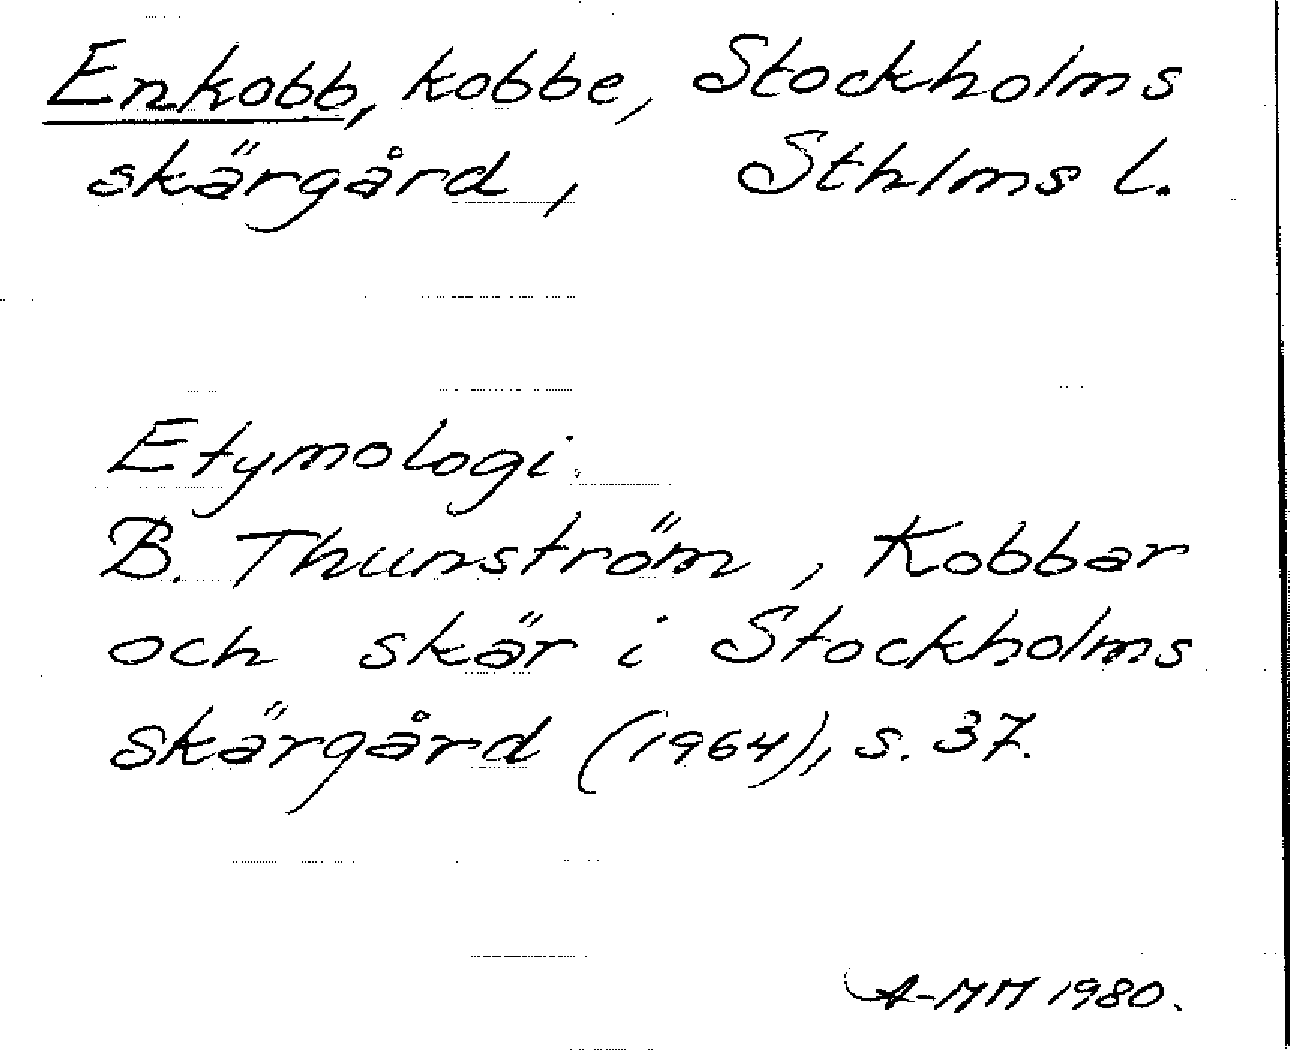 Enkobb, kobbe, Stockholms
skärgård, Sthlms l.
Etymologi.
B. Thunström, Kobbar
och skär i Stockholms
skärgård (1964), s. 37.
A-MM 1980.